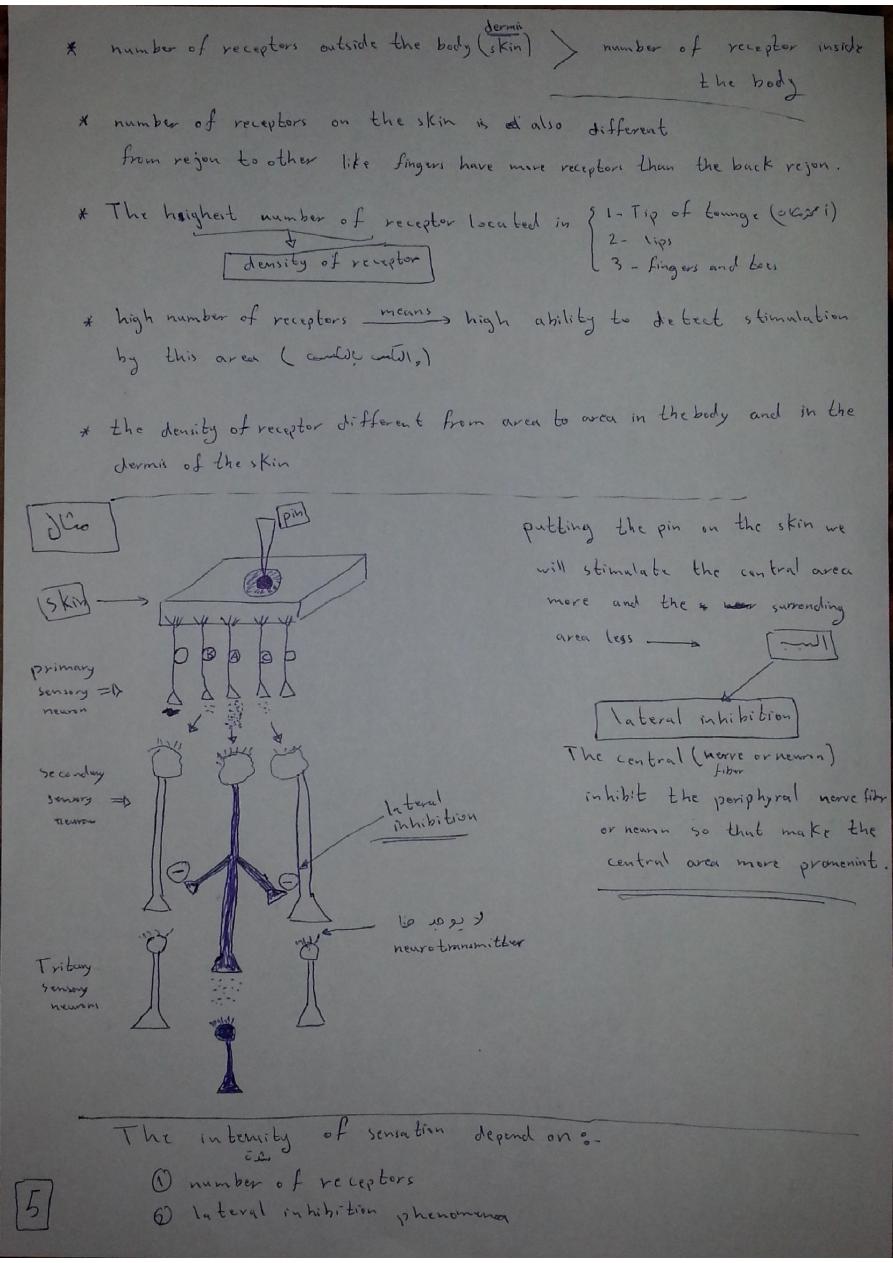 * number of receptors outside the body (skin) > number of receptor inside
dermis
the body
* number of receptors on the skin is also different
from rejon to other like fingers have more receptors than the back rejon.
* The heighest number of receptor located in { 1- Tip of tounge
2- lips
3- fingers and toes
density of receptor
* high number of receptors means → high ability to detect stimulation
by this area (والعكس بالعكس)
* the density of receptor different from area to area in the body and in the
dermis of the skin
مثال
pin
skin
primary
sensory ⇒
neuron
B A C
putting the pin on the skin we
will stimulate the central area
more and the surrending
area less →
السبب
lateral inhibition
The central (nerve or neuron)
fiber
inhibit the periphyral nerve fibr
or neuron so that make the
central area more promenint.
seconday
sensory ⇒
neuron
lateral
inhibition
- -
لا يوجد هنا
neurotransmitter
Tritary
sensory
neurons
The intensity of sensation depend on :-
شدة
① number of receptors
② lateral inhibition phenomena
5